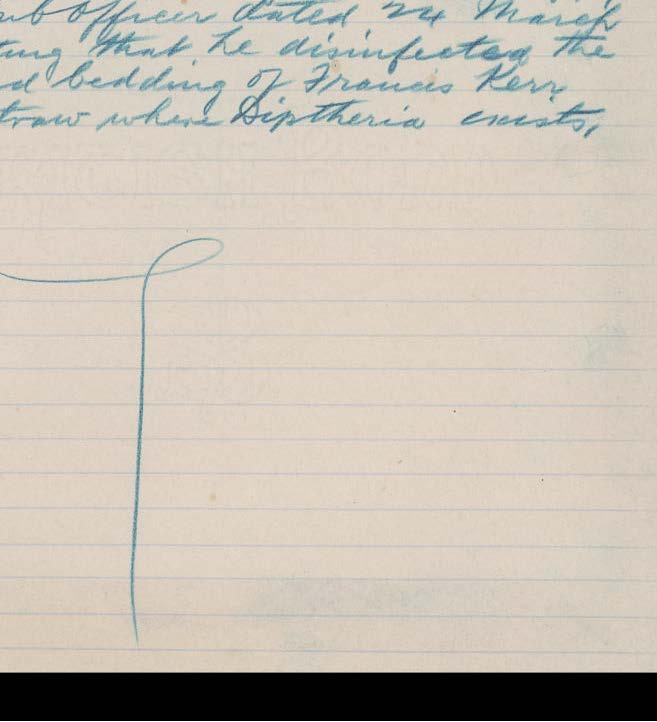 ub Officer dated 24 March
ting that he disinfected the
d bedding of Francis Kerr
traw where Diptheria exists,